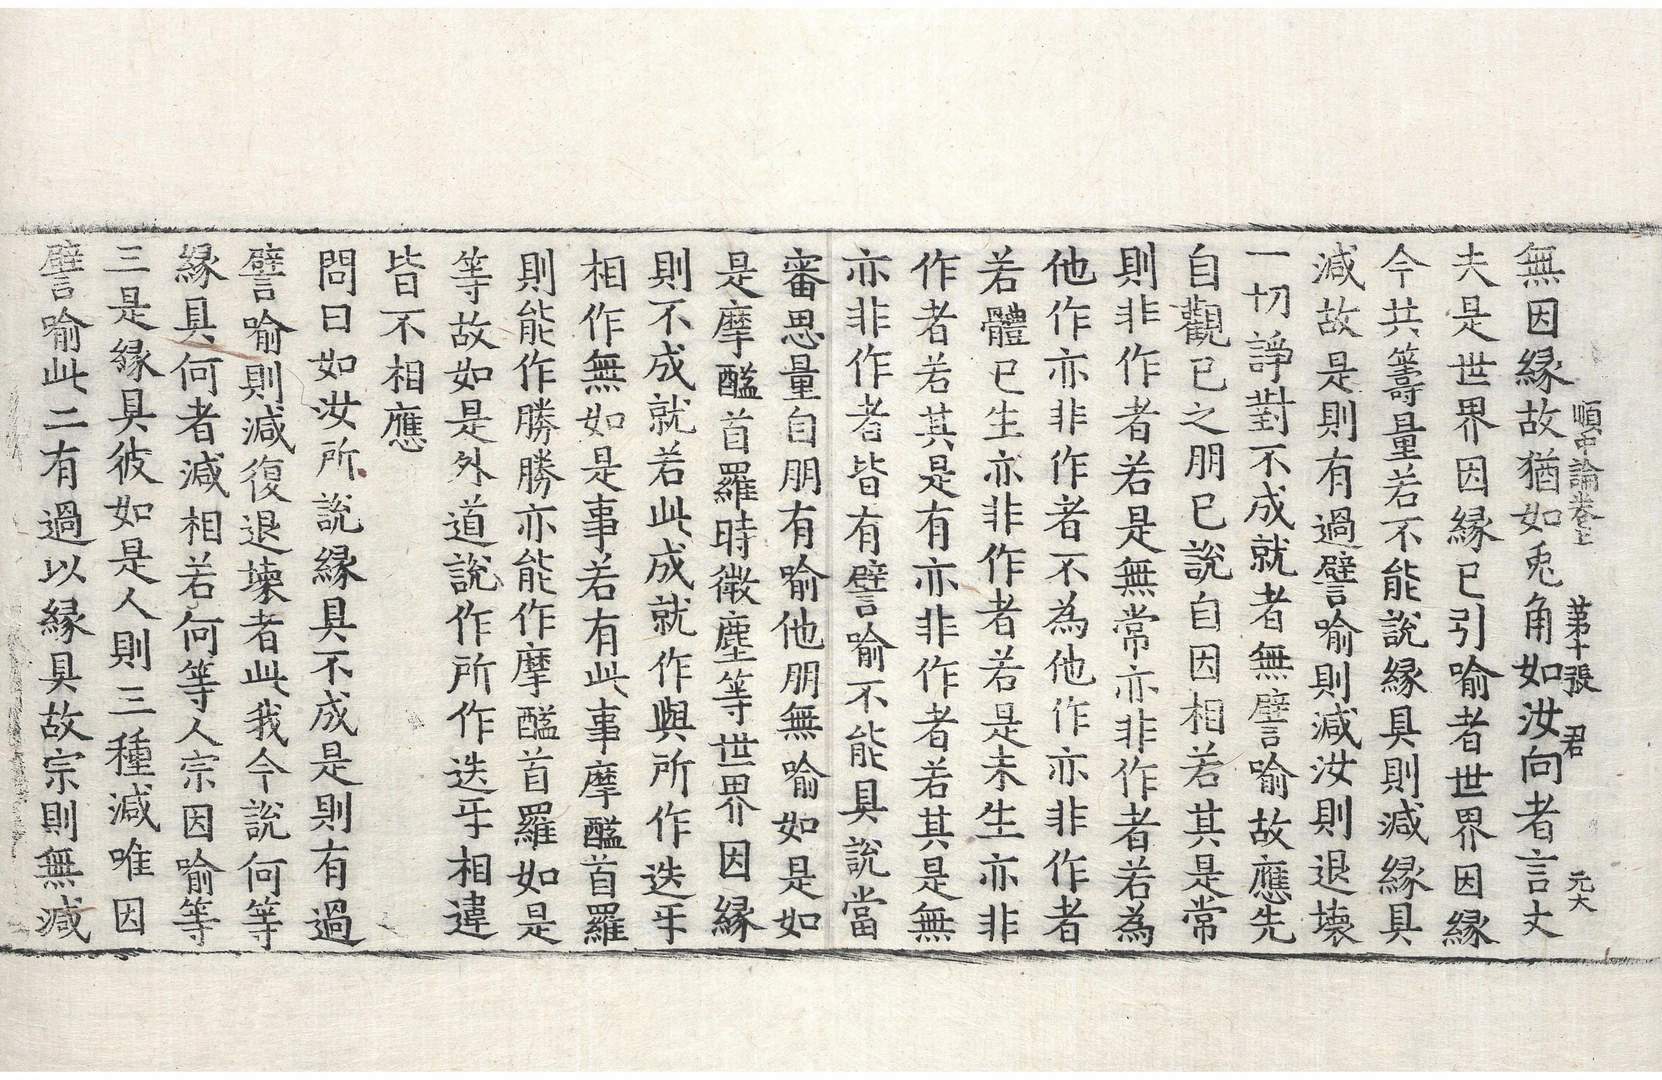 順中論卷上　第十張　君　元大
無因縁故猶如兎角如汝向者言丈
夫是世界因縁已引喻者世界因縁
今共籌量若不能說縁具則減縁具
減故是則有過譬喻則減汝則退壊
一切諍對不成就者無譬喻故應先
自觀已之朋已說自因相若其是常
則非作者若是無常亦非作者若為
他作亦非作者不為他作亦非作者
若體已生亦非作者若是未生亦非
作者若其是有亦非作者若其是無
亦非作者皆有譬喻不能具說當
審思量自朋有喻他朋無喻如是如
是摩醯首羅時微塵等世界因縁
則不成就若此成就作與所作迭㸦
相作無如是事若有此事摩醯首羅
則能作勝勝亦能作摩醯首羅如是
等故如是外道說作所作迭㸦相違
皆不相應
問曰如汝所說縁具不成是則有過
譬喻則減復退壊者此我今說何等
縁具何者減相若何等人宗因喻等
三是縁具彼如是人則三種減唯因
譬喻此二有過以縁具故宗則無減